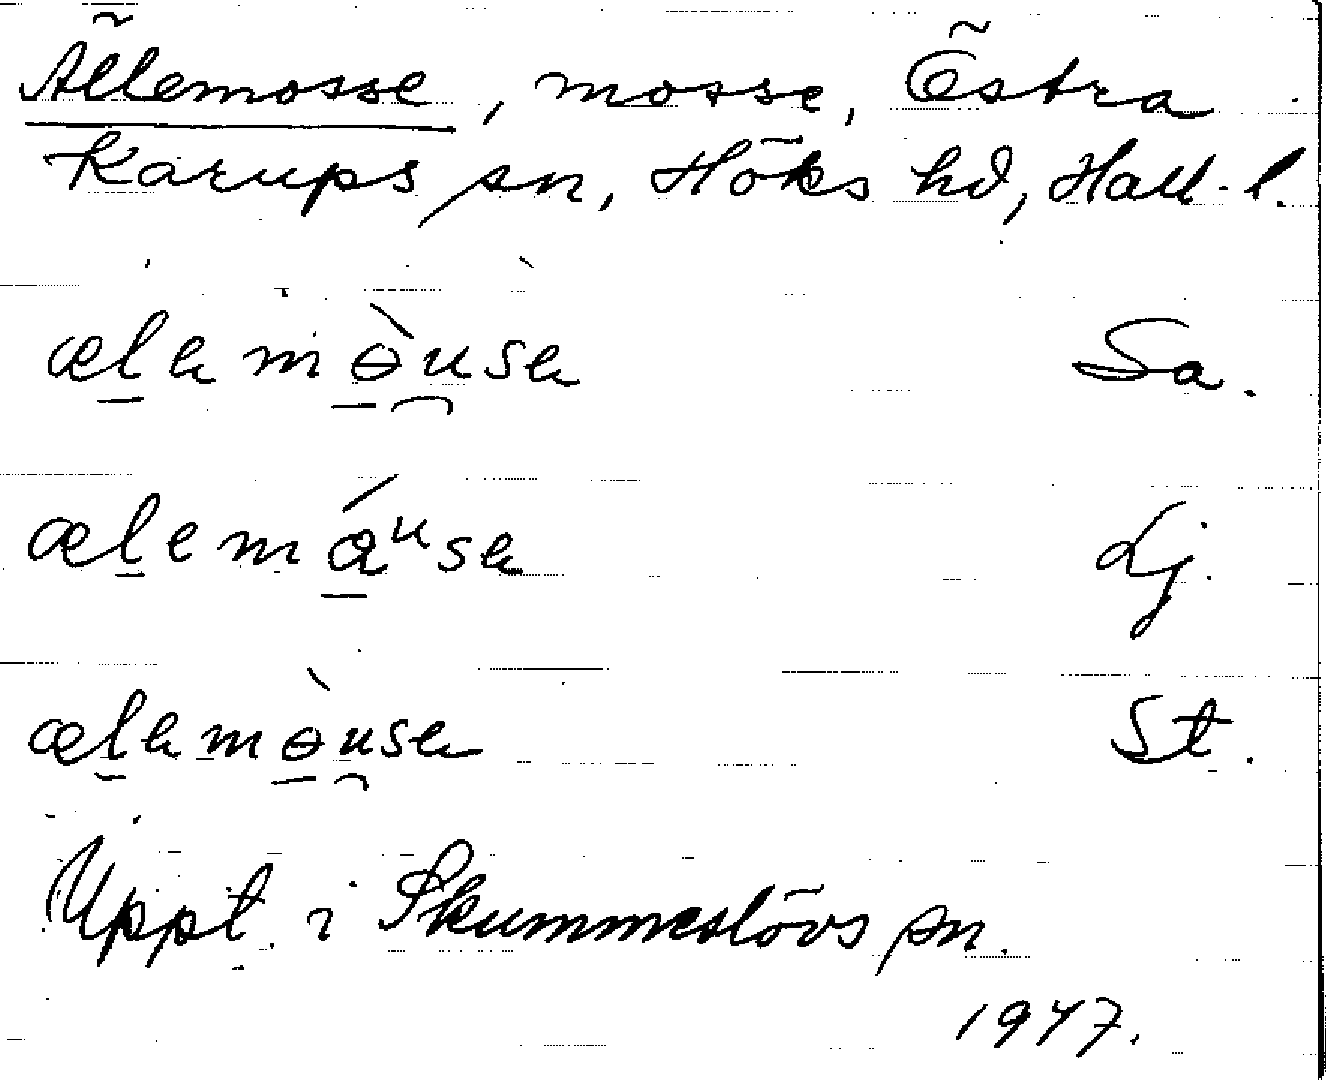 Ällemosse, mosse, Östra
Karups sn, Höks hd, Hall. l.
æl̲a mə̀u̯sa Sa.
æl̲e má̲ᵘsa Lj.
æl̲a mə̀u̯sa St.
Uppt. i Skummeslövs sn.
1947.